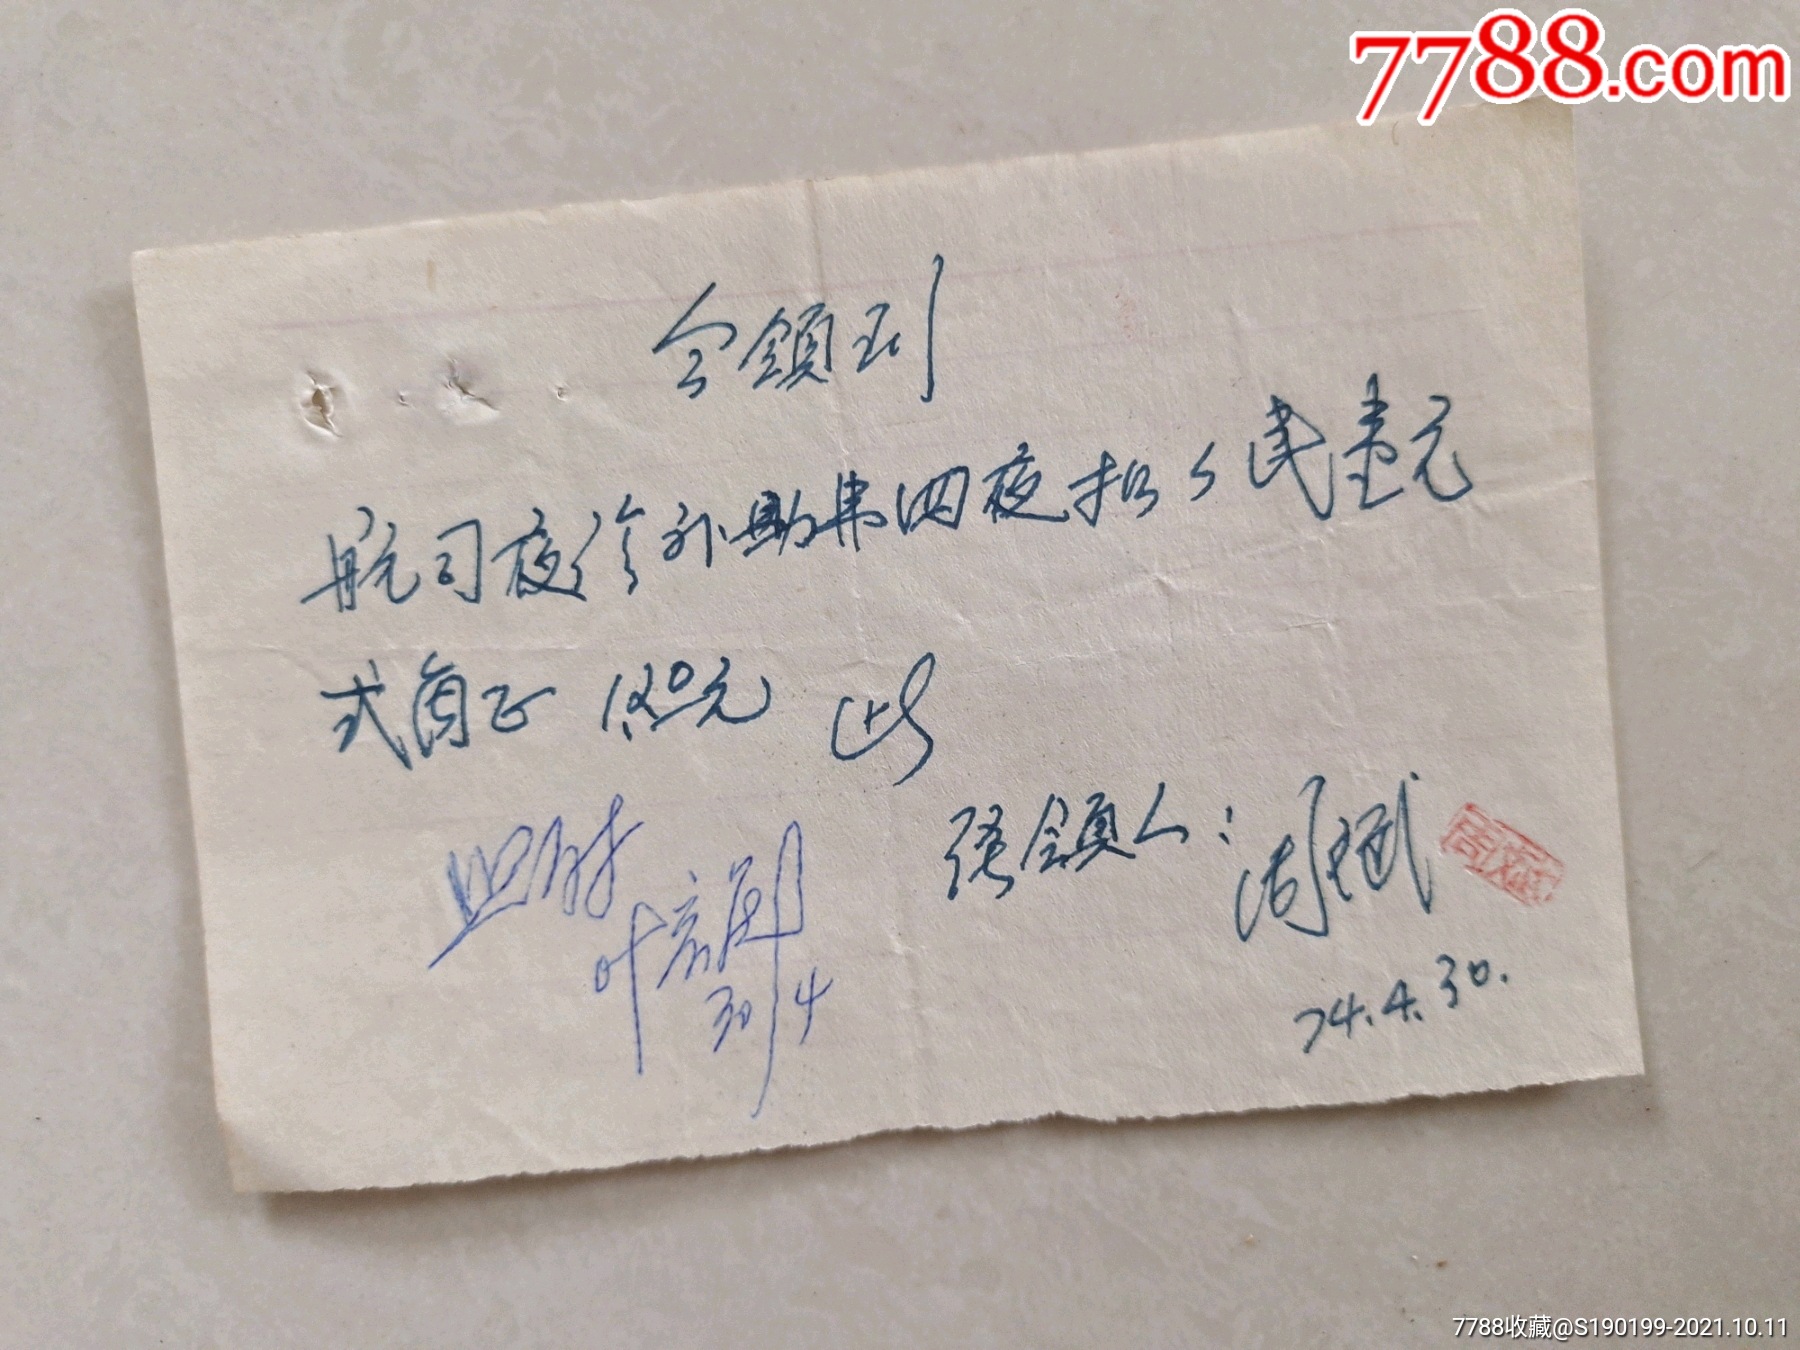 7788.com
今领到
航司夜冷补助费四夜扣人民壹元
弍角正 (20元 此
照付
叶
30/4
经领人:周
74.4.30.
7788收藏@S190199-2021.10.11